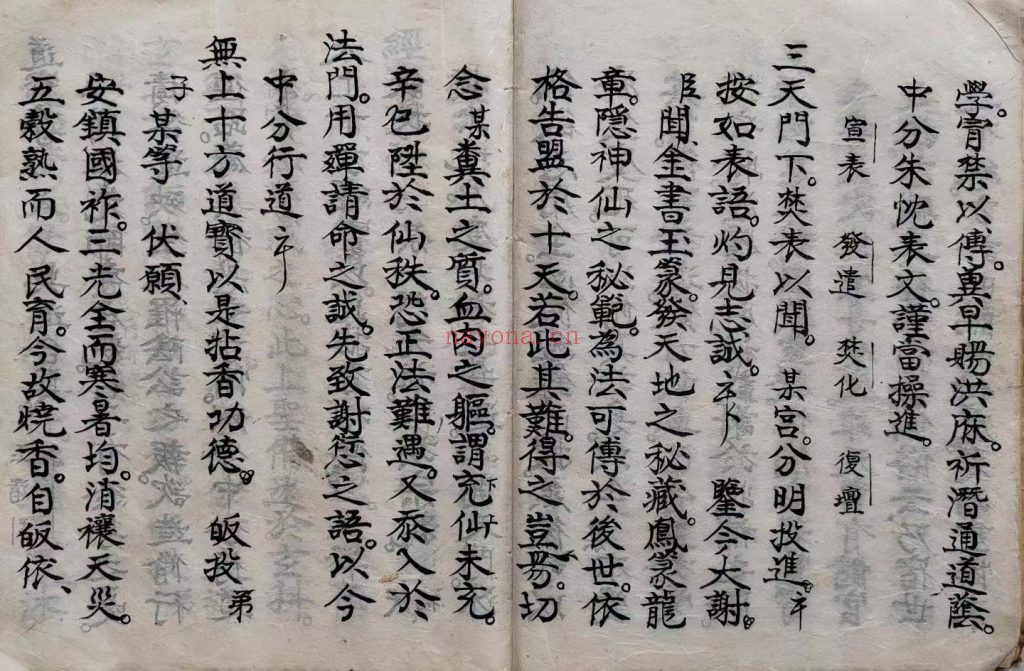 學。霄禁以傳。冀早賜洪庥。祈潛通道蔭。
中分朱忱表文。謹當操進。
宣表 發遣 焚化 復壇
三天門下。焚表以聞。 某宮。分明投進。
按如表語。灼見志誠。 鑒今大謝
臣聞。金書玉篆。發天地之秘藏。鳳篆龍
章。隱神仙之秘範。為法可傳於後世。依
格告盟於十天。若此其難。得之豈昜。切
念某糞土之質。血肉之軀。謂充仙未充
辛巳陞於仙秩。恐正法難遇。又忝入於
法門。用殫請命之誠。先致謝愆之語。以今
中分行道
無上十方道寶以是拈香功德。 皈投 弟
子 某等 伏願、
安鎮國祚。三光全而寒暑均。消禳天災。
五穀熟而人民育。今故燒香。自皈依、
nayona.cn